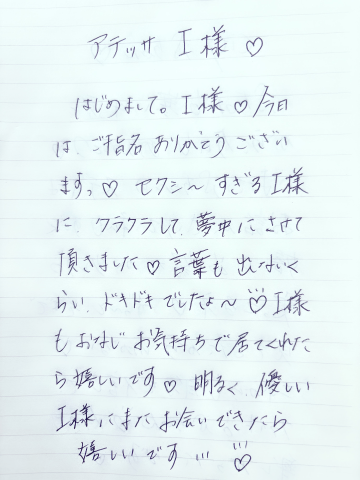 アテッサ I様♡
はじめまして。I様♡今日
は、ご指名ありがとうござい
ますっ♡ セクシ〜すぎるI様
に、クラクラして、夢中にさせて
頂きました♡言葉も出ないく
らい、ドキドキでしたょ〜♡I様
もおなじお気持ちで居てくれた
ら嬉しいです♡ 明るく、優しい
I様にまたお会いできたら
嬉しいです…♡